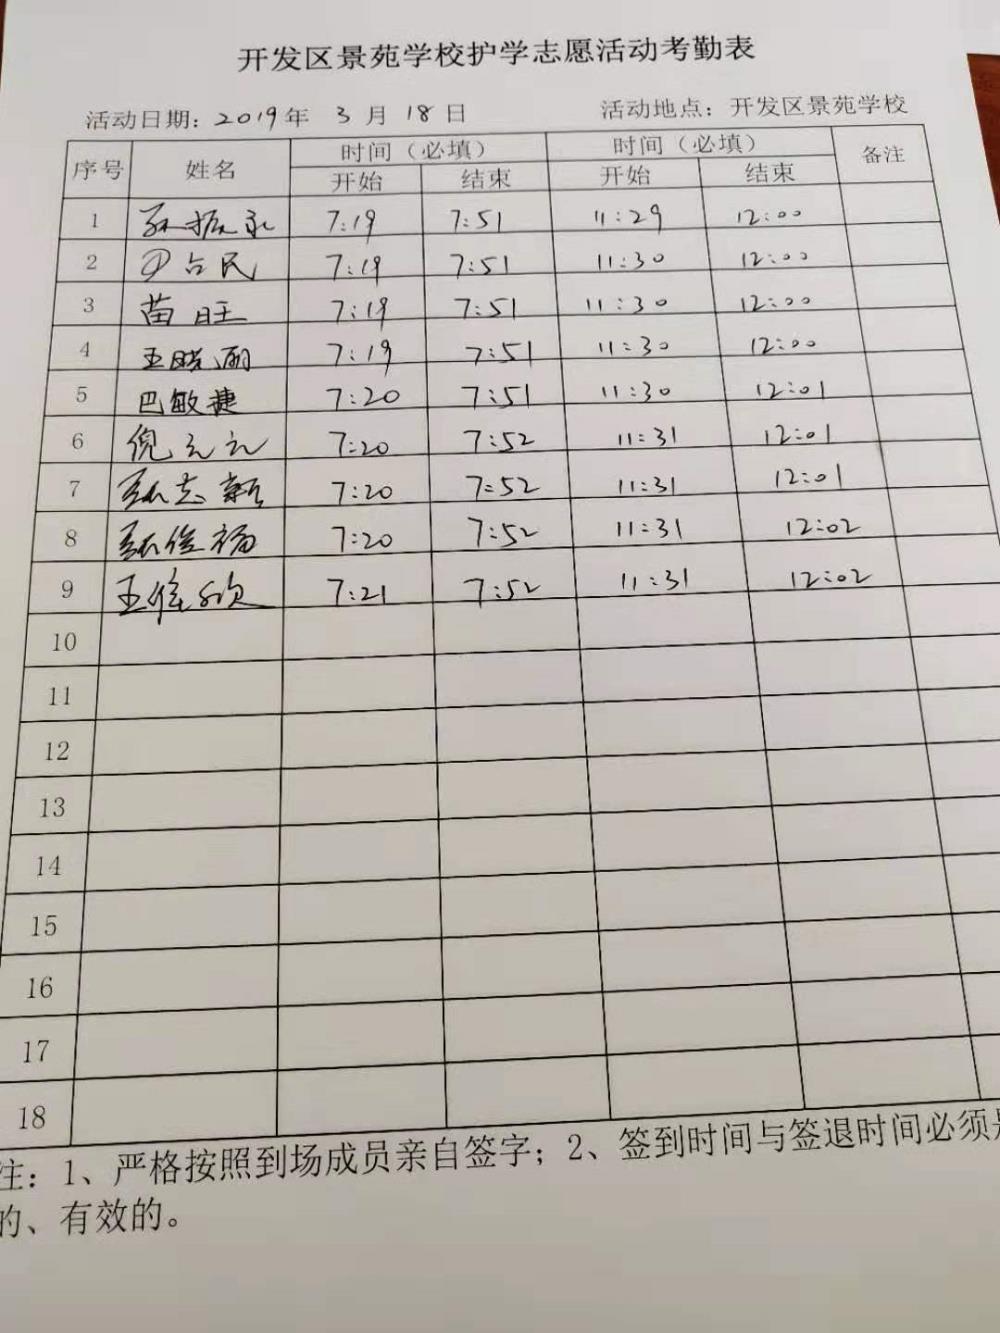 开发区景苑学校护学志愿活动考勤表
活动日期：2019年 3月 18日 活动地点：开发区景苑学校
序号 姓名 时间（必填） 时间（必填） 备注
开始 结束 开始 结束
1 7:19 7:51 11:29 12:00
2 占民 7:19 7:51 11:30 12:00
3 苗旺 7:19 7:51 11:30 12:00
4 王晓丽 7:19 7:51 11:30 12:00
5 巴敏捷 7:20 7:51 11:30 12:01
6 倪元元 7:20 7:52 11:31 12:01
7 志新 7:20 7:52 11:31 12:01
8 俊杨 7:20 7:52 11:31 12:02
9 王 欣 7:21 7:52 11:31 12:02
10
11
12
13
14
15
16
17
18
注：1、严格按照到场成员亲自签字；2、签到时间与签退时间必须是
的、有效的。